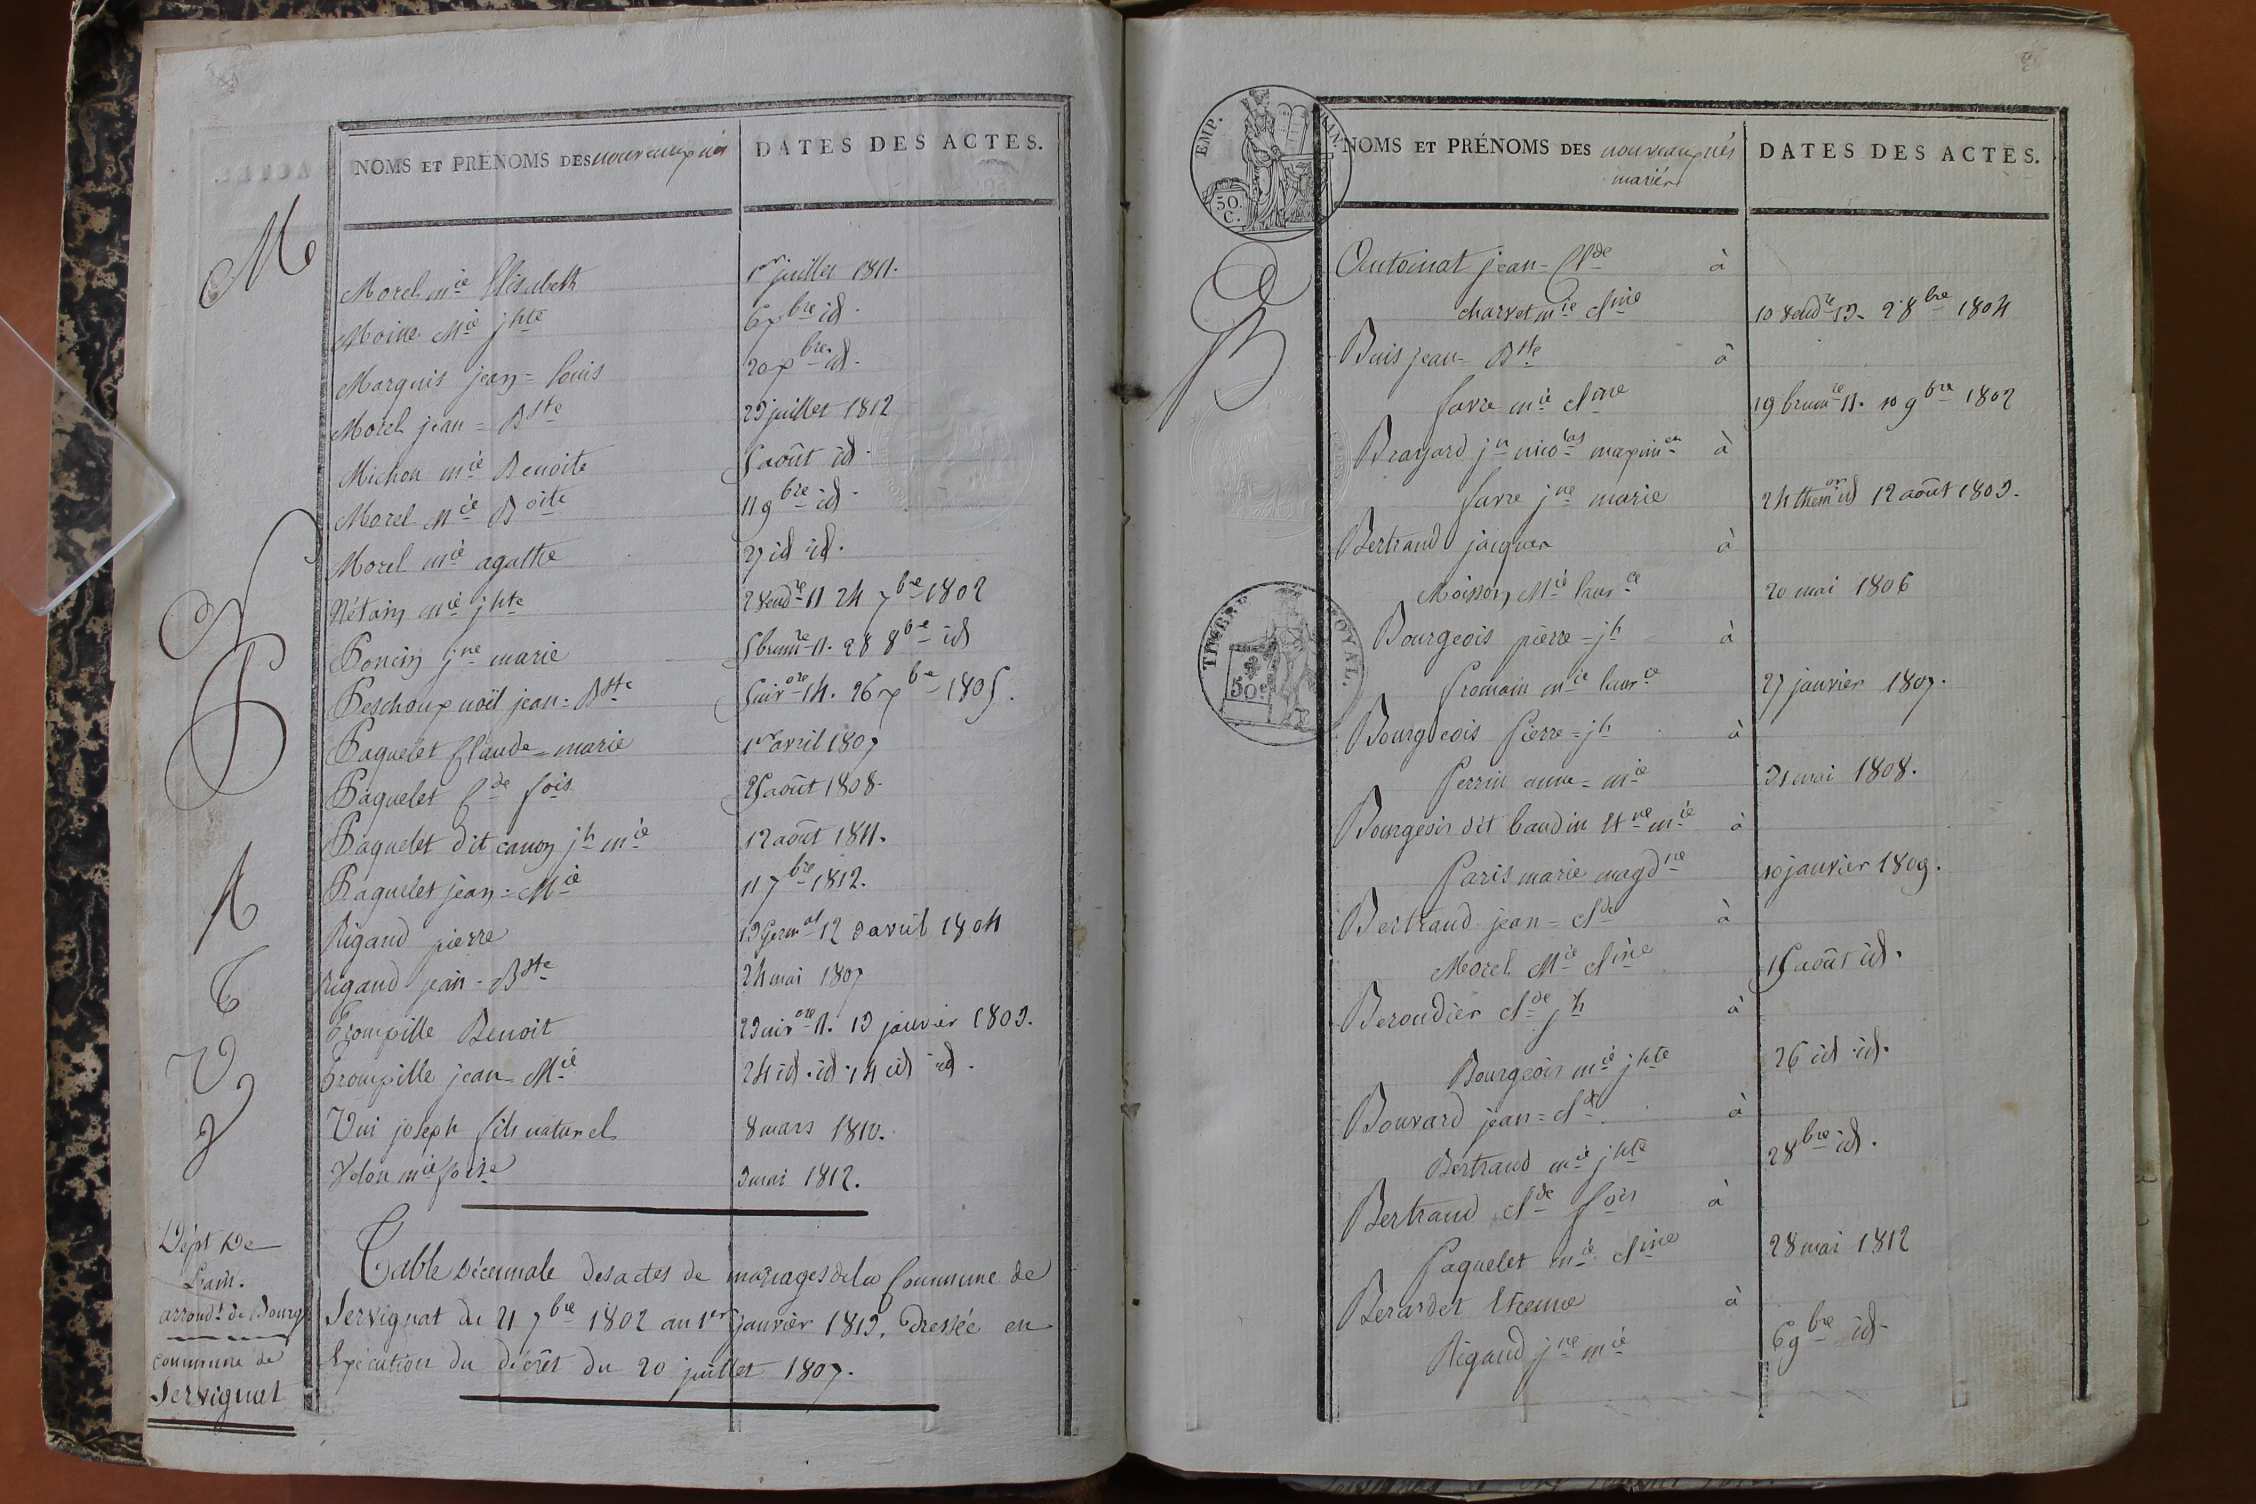 NOMS ET PRÉNOMS DES nouveaux nés
DATES DES ACTES.
M
Morel mie Elisabeth 1er juillet 1811.
Moine Mie jhte 6 xbre id.
Marquis jean=louis 20 xbre id.
Morel jean=Bste 23 juillet 1812
Michon mie Benoite 5 août id.
Morel Mie Boite 11 9bre id.
Morel mie agathe 27 id id.
N
Nétain mie jhte 2 vendre 11 24 7bre 1802
P
Poncin jne marie 5 brumre 11. 28 8bre id
Peschoux noël jean=Bste 5 nivose 14. 26 xbre 1805.
Paquelet Claude=marie 1er avril 1807
Paquelet Cde fois 25 août 1808.
Paquelet dit canon jh mie 12 août 1811.
Paquelet jean=Mie 11 7bre 1812.
R
Rigaud pierre 13 germal 12 3 avril 1804
Rigaud jean=Bste 24 mai 1807
T
Trompille Benoit 23 nivose 11. 13 janvier 1803.
Trompille jean=Mie 24 id. id. 14 id id.
V
Vui joseph fils naturel 8 mars 1810.
Velon mie foise 3 mai 1812.
Dépt De
L'ain.
arrondt de Bourg
commune de
Servignat
Table Décennale des actes de mariages de la Commune de
Servignat du 21 7bre 1802 au 1er janvier 1813, Dressée en
Exécution du décrêt du 20 juillet 1807.
EMP.
50.
C.
NOMS ET PRÉNOMS DES nouveaux nés
mariés
DATES DES ACTES.
Antoinat jean=Clde à
charvet mie Cline 10 vendre 13. 2 8bre 1804
B
Buis jean=Bste à
favre mie Cline 19 brumre 11. 10 9bre 1802
Brayard jn nicolas maximen à
favre jne marie 24 themor id 12 août 1803.
Bertrand jacques à
Moisson Mie laurce 20 mai 1806
TIMBRE ROYAL.
50c
Bourgeois pierre=jh à
fromain mie laurce 27 janvier 1807.
Bourgeois Pierre=jh à
Perrin anne=mie 31 mai 1808.
Bourgeois dit baudin Etne mie à
Paris marie magdne 10 janvier 1809.
Bertrand jean=Clde à
Morel Mie Cline 15 août id.
Beroudier Clde jh à
Bourgeois mie jhte 26 id id.
Bouvard jean=Clde à
Bertrand mie jhte 2 8bre id.
Bertrand Clde fois à
Paquelet mie Cline 28 mai 1812
Berardet Etienne à
Rigaud jne mie 6 9bre id.